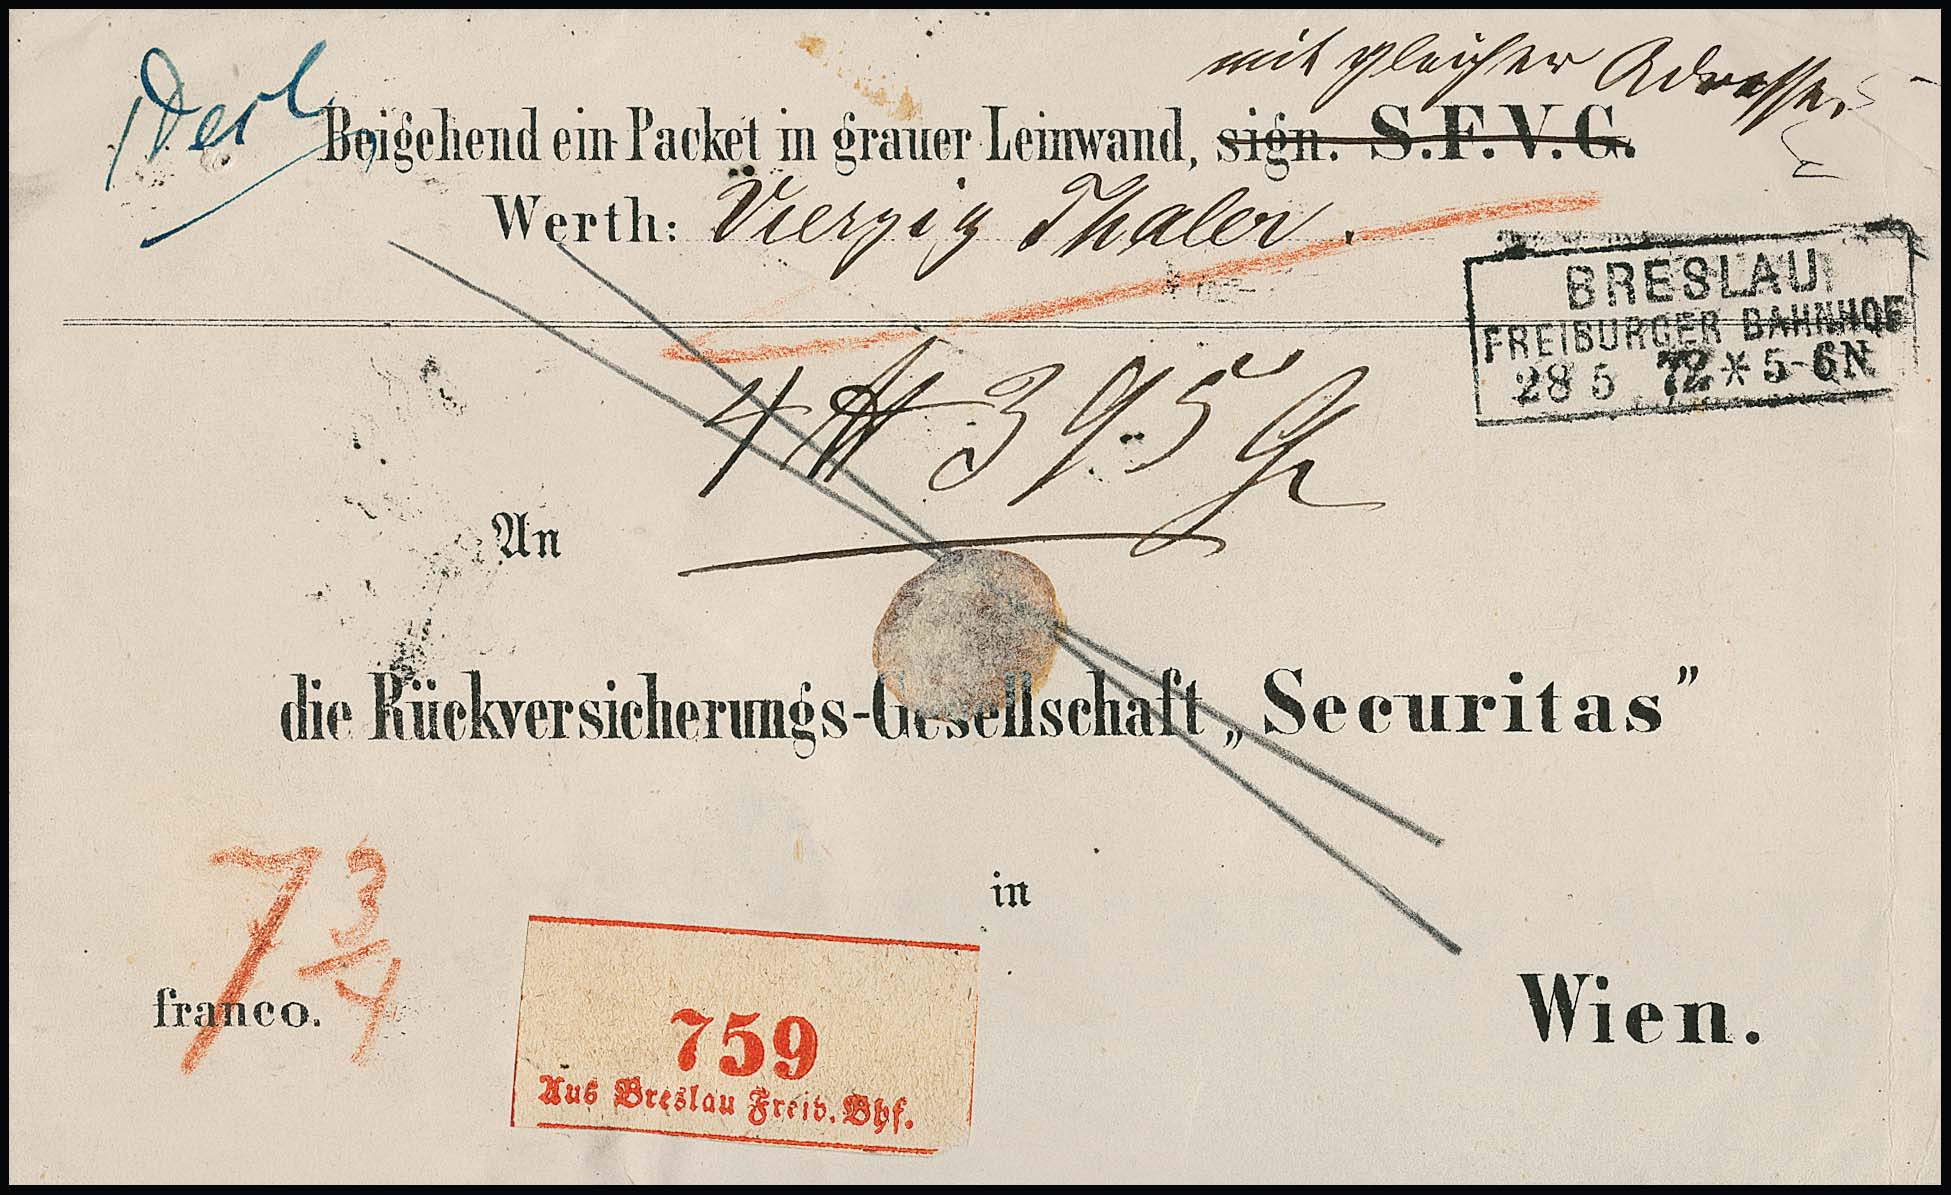 mit gleicher Adresse.
Beigehend ein Packet in grauer Leinwand, sign. S.F.V.G.
Werth: Vierzig Thaler.
BRESLAU
FREIBURGER BAHNHOF
28 5 72 * 5-6N
4 ℔ 395 Gr
An
die Rückversicherungs-Gesellschaft „Securitas”
in
Wien.
7 3/4
franco.
759
Aus Breslau Freib. Bhf.